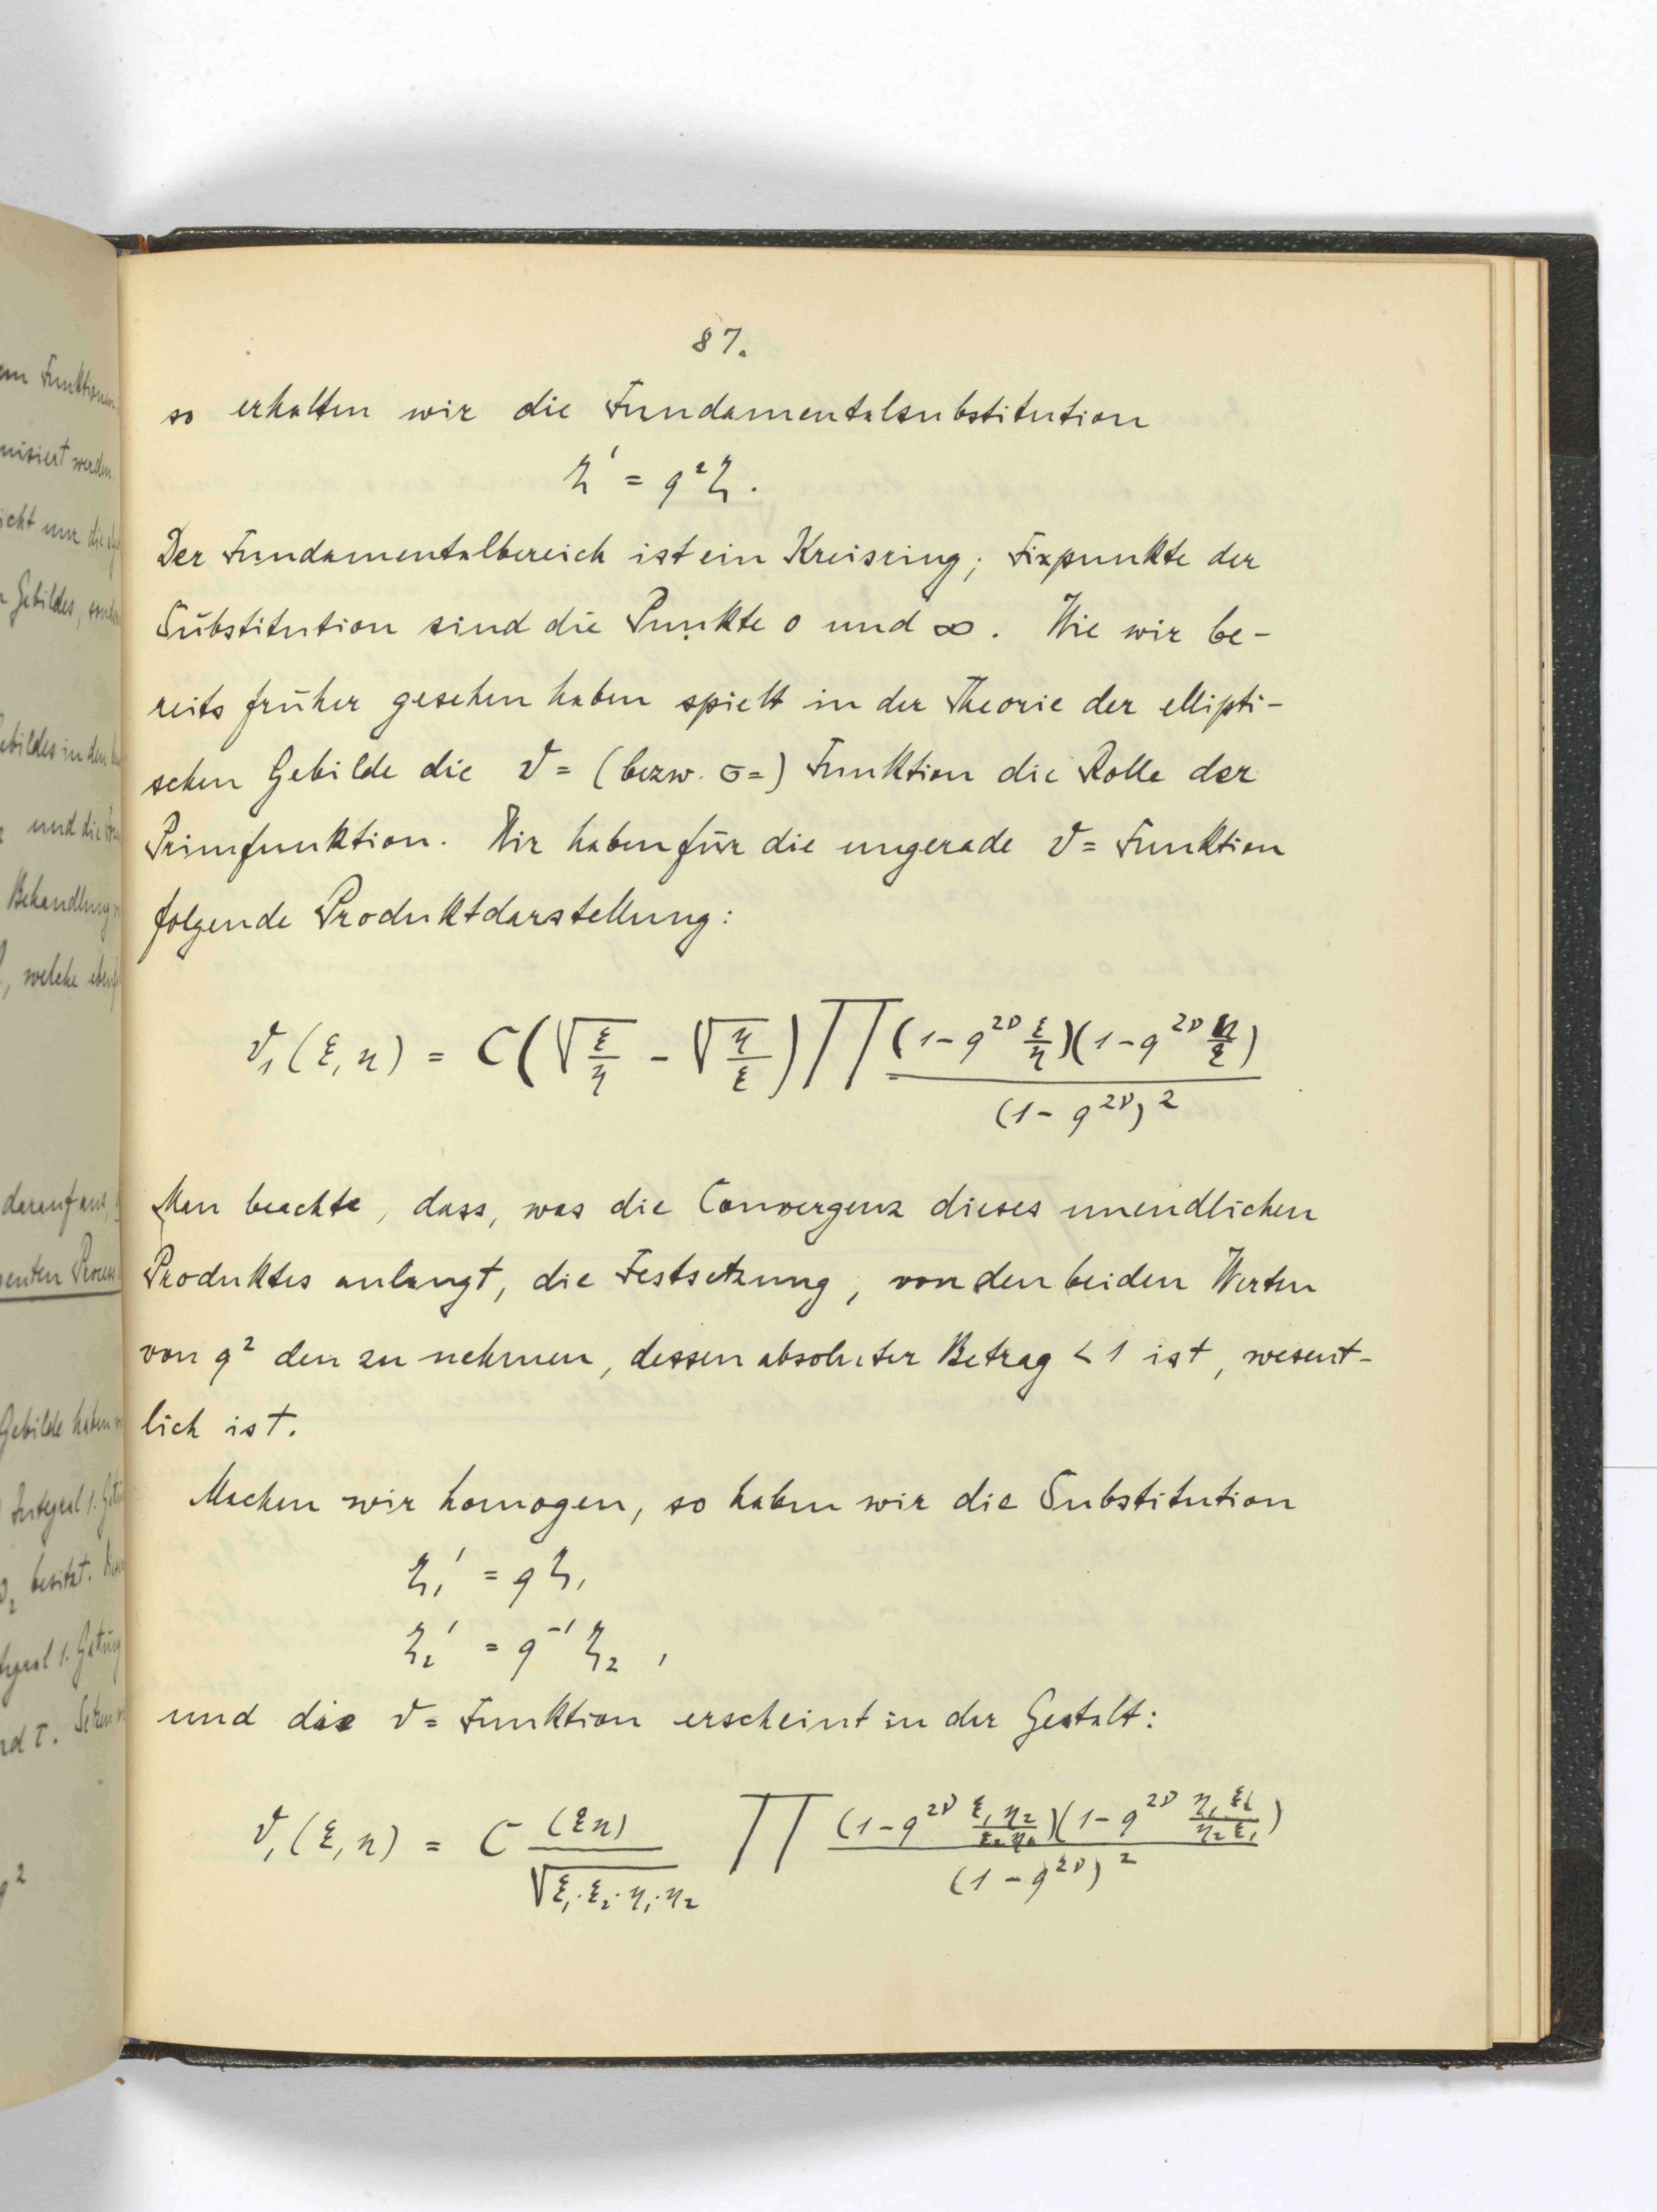 em Funktionen
nisiert werden.
icht nur die
Gebildes,
Gebildes in den
und die
Behandlung
, welche
darauf aus,
enten Process
Gebilde haben
Integral 1.
besitzt.
1. Gattung
nd τ. Setzen
q²
87.
so erhalten wir die Fundamentalsubstitution
ζ' = q²ζ.
Der Fundamentalbereich ist ein Kreisring; Fixpunkte der
Substitution sind die Punkte 0 und ∞. Wie wir be-
reits früher gesehen haben spielt in der Theorie der ellipti-
schen Gebilde die ϑ= (bezw. σ=) Funktion die Rolle der
Primfunktion. Wir haben für die ungerade ϑ= Funktion
folgende Produktdarstellung:
ϑ₁(ξ,η) = C(√(ξ/η) - √(η/ξ)) ∏ (1-q^{2ν} ξ/η)(1-q^{2ν} η/ξ) / (1-q^{2ν})²
Man beachte, dass, was die Convergenz dieses unendlichen
Produktes anlangt, die Festsetzung, von den beiden Werten
von q² den zu nehmen, dessen absoluter Betrag < 1 ist, wesent-
lich ist.
Machen wir homogen, so haben wir die Substitution
ζ₁' = qζ₁
ζ₂' = q⁻¹ζ₂ ,
und die ϑ= Funktion erscheint in der Gestalt:
ϑ₁(ξ,η) = C (ξη) / √(ξ₁·ξ₂·η₁·η₂) ∏ (1-q^{2ν} ξ₁η₂/ξ₂η₁)(1-q^{2ν} η₁ξ₂/η₂ξ₁) / (1-q^{2ν})²